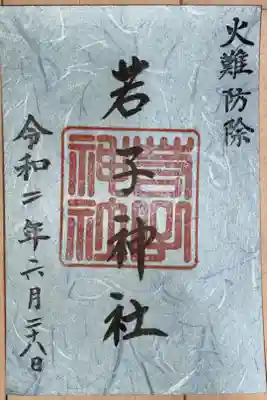 火難防除
若子神社
若子神社
令和二年六月二十八日